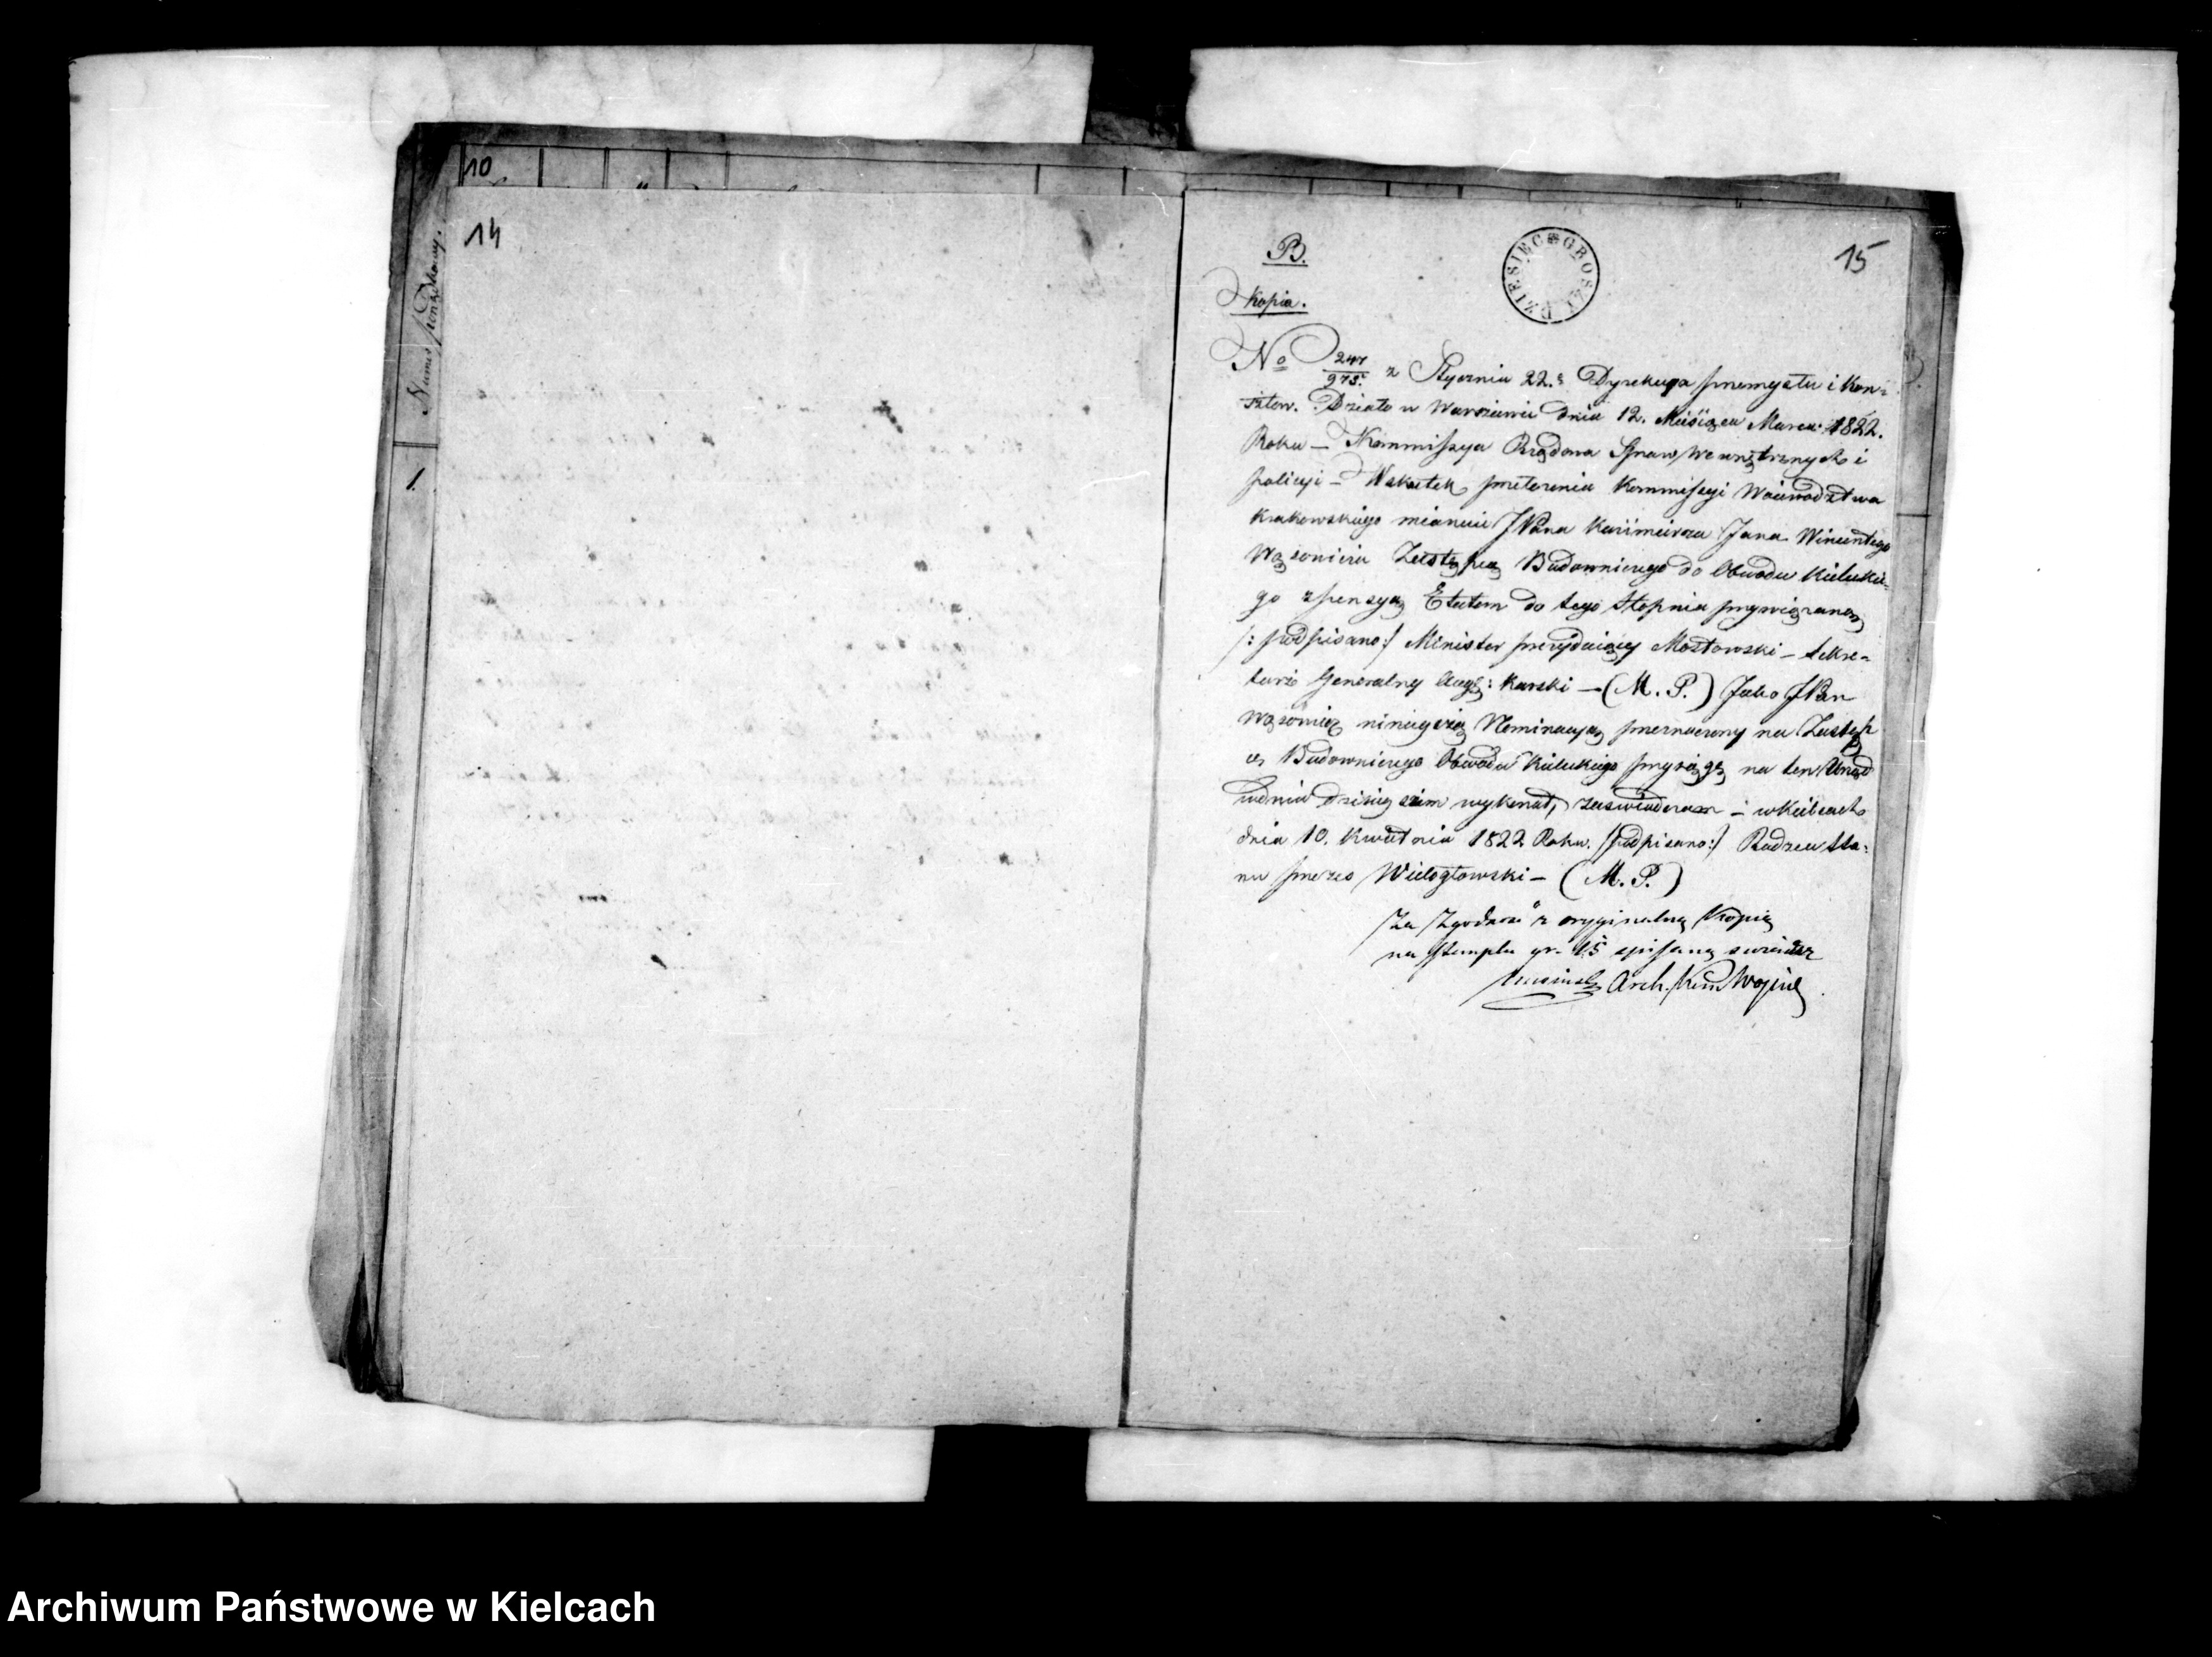 10
14
Numer porządkowy.
1.
B.
DZIESIĘĆ GROSZY
15
Kopia.
No 247/973. z Stycznia 22. Dyrekcya przemysłu i Kun-
sztow. Działo w Warszawie dnia 12. Miesiąca Marca 1822.
Roku – Kommissya Rządowa Spraw Wewnętrznych i
policyi – Wskutek Kommissyi Woiewodztwa
Krakowskiego mianuie JPana Kazimierza Jana Wincentego
Wąsowicza Zastępcą Budowniczego do Obwodu Kieleckie-
go z pensyą Etatem do tego Stopnia przywiązaną
/: podpisano:/ Minister prezyduiący Mostowski – Sekre-
tarz Generalny Aug: Karski – (M. P.) Jako JPan
Wąsowicz ninieyszą Nominacyą przeznaczony na Zastęp
cę Budowniczego Obwodu Kieleckiego przysięgę na ten Urząd
wdniu dzisieyszim wykonał, zaswiadczam – w Kielcach
dnia 10. Kwietnia 1822 Roku. /podpisano:/ Radzca Sta-
nu prezes Wielogłowski – (M. P.)
Za Zgodność z oryginalną Kopią
na stemplu gr. 15 spisaną
Arch. Kom Wojew
Archiwum Państwowe w Kielcach